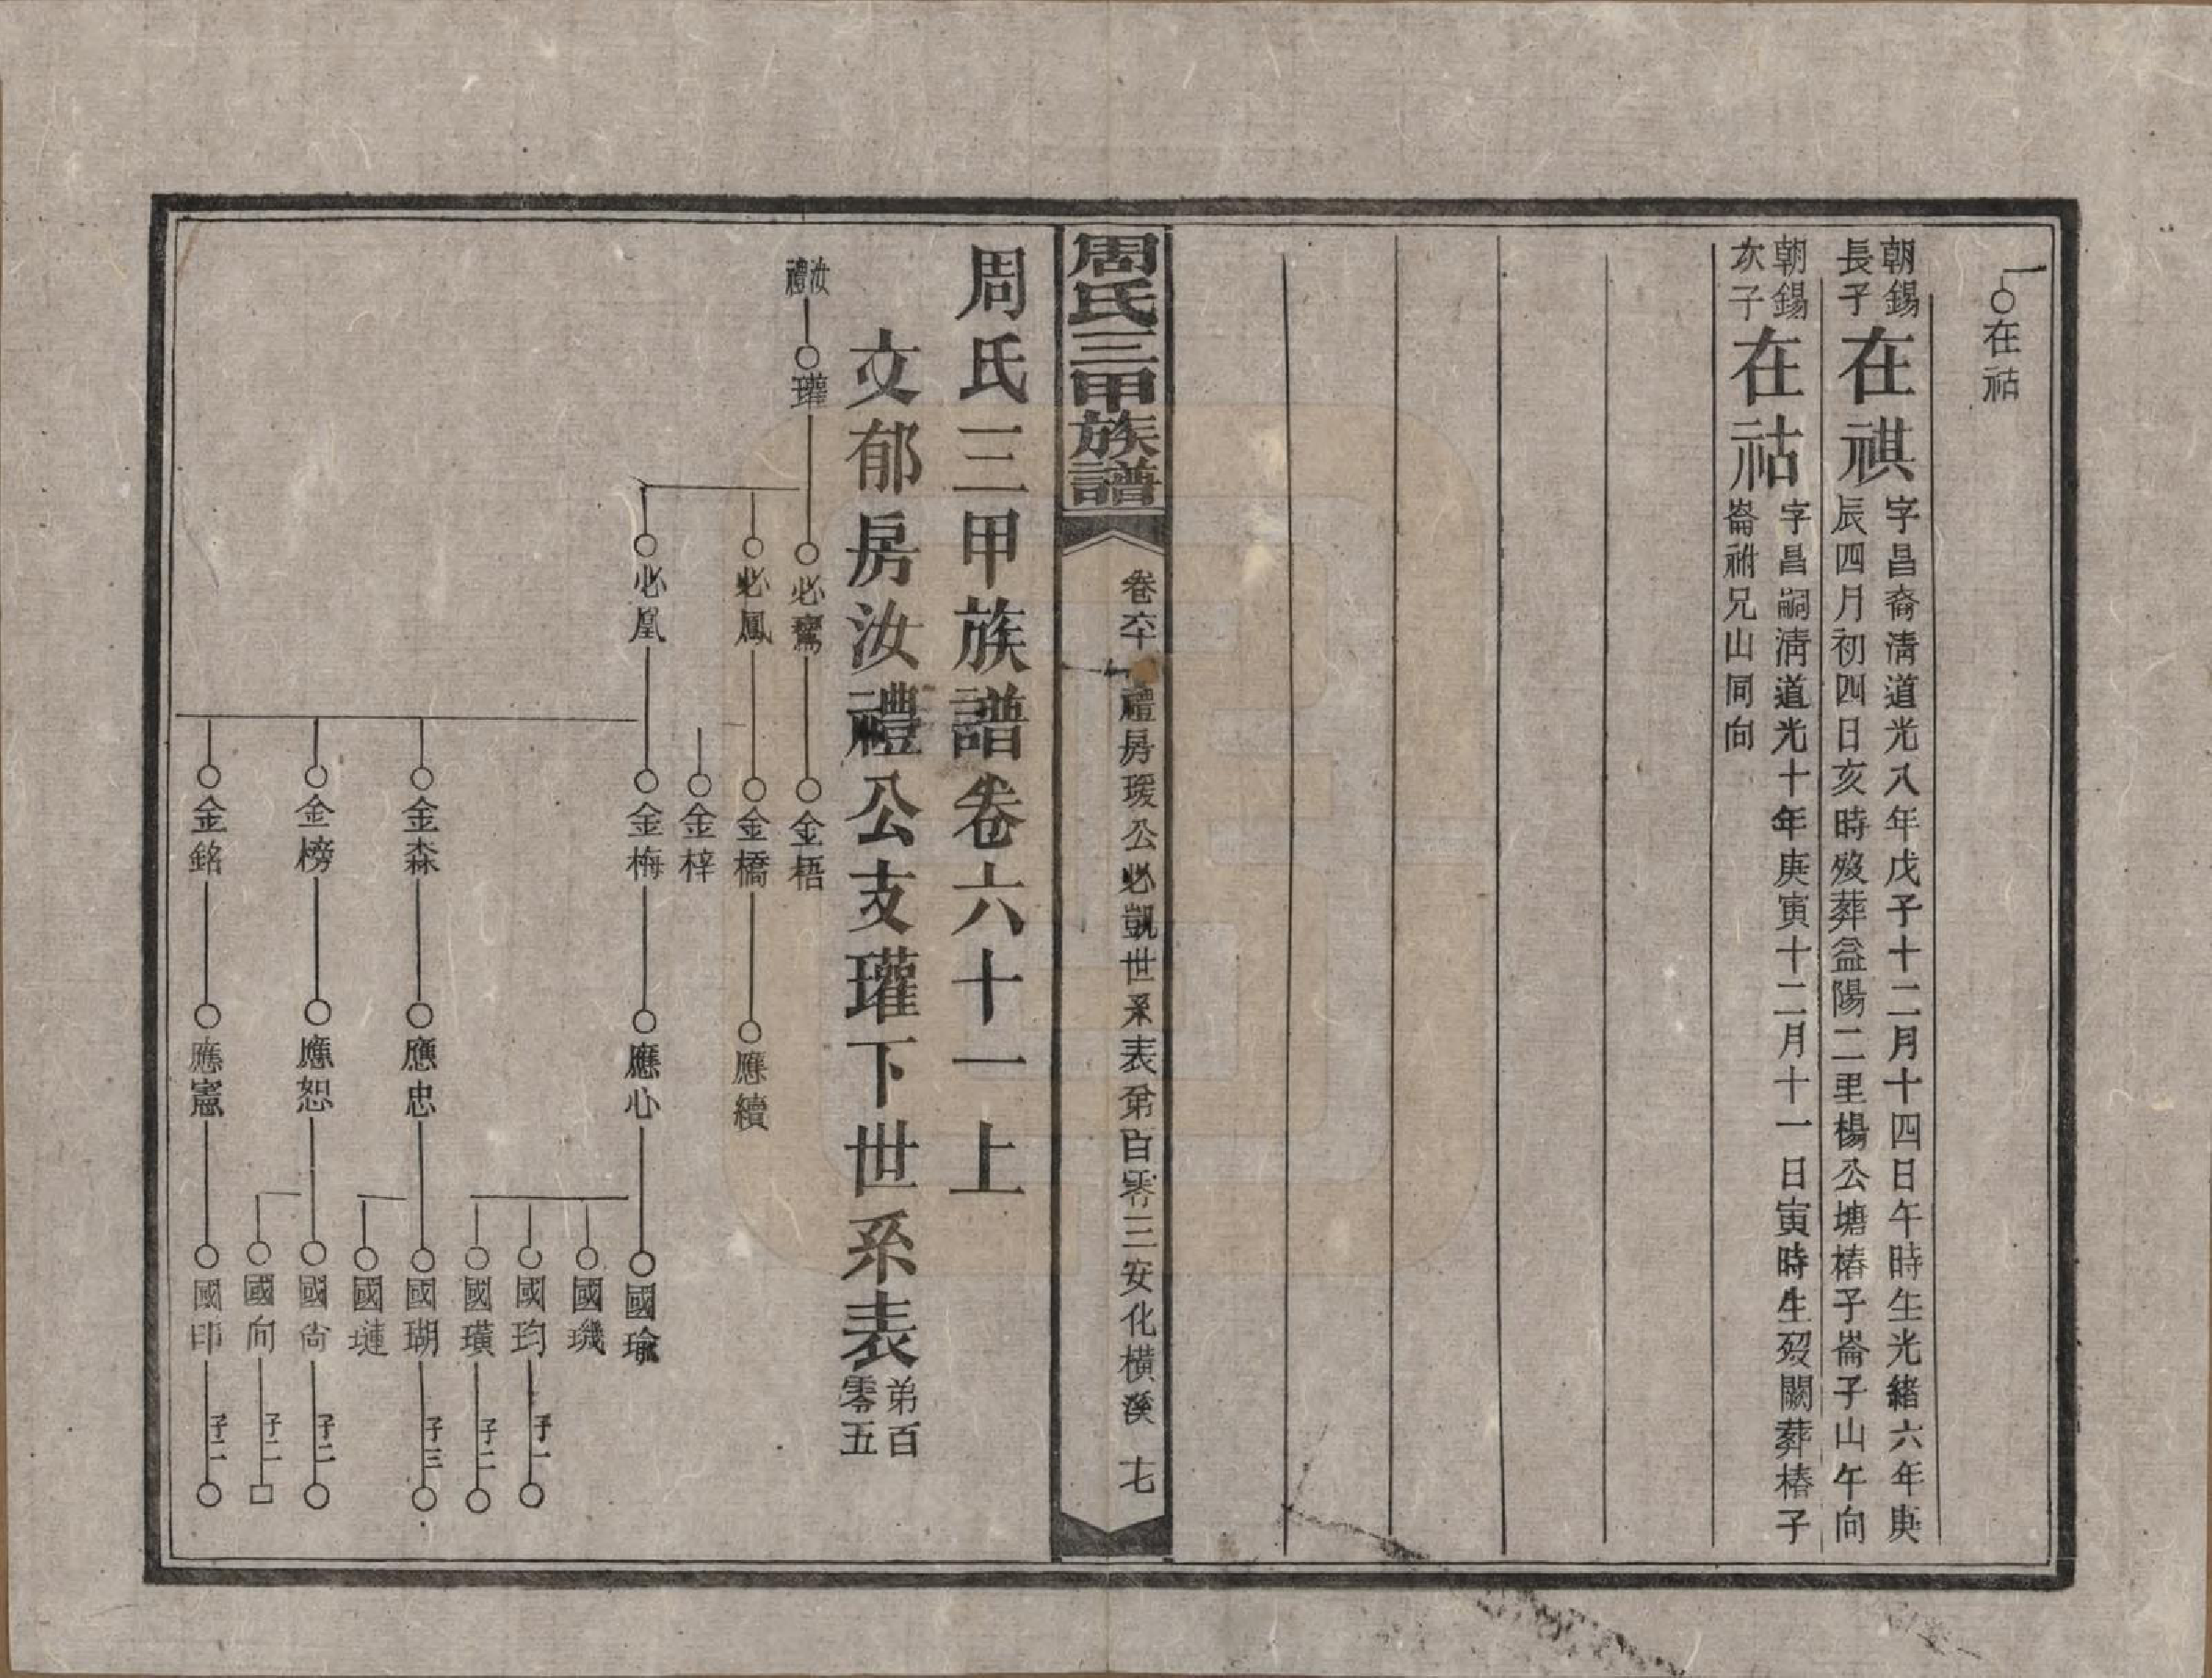 在祜
朝錫
長子
在祺
字昌裔淸道光八年戊子十二月十四日午時生光緒六年庚
辰四月初四日亥時歿葬益陽二里楊公塘樁子崙子山午向
朝錫
次子
在祜
字昌嗣淸道光十年庚寅十二月十一日寅時生歿闕葬樁子
崙祔兄山同向
周氏三甲族譜
卷六十 禮房瑗公必凱世系表第百零三安化橫溪 十七
周氏三甲族譜卷六十一上
文郁房汝禮公支瓘下世系表
第百
零五
汝禮
瓘
必鸞
金梧
必鳳
金橋
應續
金梓
必凰
金梅
應心
國瑜
國璣
國均 子一
國璜 子二
金森
應忠
國瑚 子三
國璉
金榜
應恕
國尙 子二
國向 子二
金銘
應憲
國印 子二